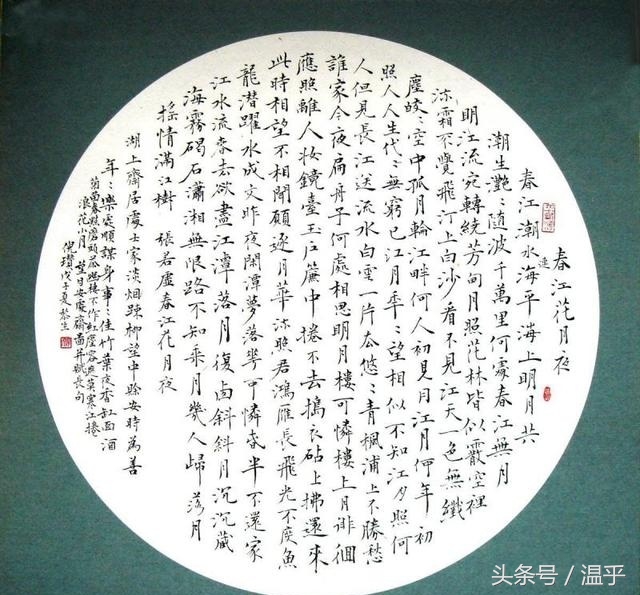 春江花月夜
春江潮水連海平海上明月共
潮生灔々随波千萬里何處春江無月
明江流宛轉繞芳甸月照花林皆似霰空裡
流霜不覺飛汀上白沙看不見江天一色無纖
塵皎々空中孤月輪江畔何人初見月江月何年初
照人人生代々無窮已江月年々望相似不知江夕照何
人但見長江送流水白雲一片去悠々青楓浦上不勝愁
誰家今夜扁舟子何處相思明月樓可憐樓上月徘徊
應照離人妝鏡臺玉戶簾中捲不去搗衣砧上拂還來
此時相望不相聞願逐月華流照君鴻雁長飛光不度魚
龍潛躍水成文昨夜閑潭夢落花可憐春半不還家
江水流春去欲盡江潭落月復西斜斜月沉沉藏
海霧碣石瀟湘無限路不知乘月幾人歸落月
搖情滿江樹 張若虛春江花月夜
湖上齋居處士家淡烟踈柳望中賒安時為善
年々樂處順謀身事々佳竹葉夜香缸面酒
菊苗春點磨頭茶幽棲不作紅塵客遮莫寒江捲
浪花 小月望日安處齋圖并賦長句
倪瓚 戊子夏
头条号 / 温乎